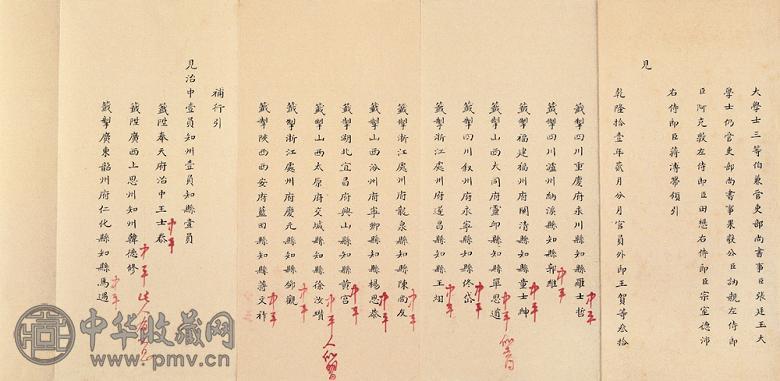 大學士三等伯兼管吏部尚書事臣張廷玉大
學士仍管吏部尚書事果毅公臣訥親左侍郎
臣阿克敦左侍郎臣田懋右侍郎臣宗室德沛
右侍郎臣蔣溥帶領引
見
乾隆拾壹年貳月分月官員外郎王賀等叁拾
籤掣四川重慶府永川縣知縣羅士哲 中平
籤掣四川瀘州納溪縣知縣郭維 中平
籤掣福建福州府閩清縣知縣童士紳 中平
籤掣山西大同府靈邱縣知縣單思道 中平
籤掣四川叙州府永寧縣知縣佟岱 中平
籤掣浙江處州府遂昌縣知縣王烟 中平
籤掣浙江處州府龍泉縣知縣陳尚友 中平
籤掣山西汾州府寧鄉縣知縣楊思泰 中平
籤掣湖北宜昌府興山縣知縣黃宮 中平
籤掣山西太原府交城縣知縣徐汝瓚 中平
籤掣浙江處州府慶元縣知縣鄒觀 中平
籤掣陝西西安府藍田縣知縣蔣文祚 中平
補行引
見治中壹員知州壹員知縣壹員
籤陞奉天府治中王士泰 中平
籤陞廣西上思州知州韓德修 中平
籤掣廣東韶州府仁化縣知縣馬遇 中平
中华收藏网
www.pmv.cn